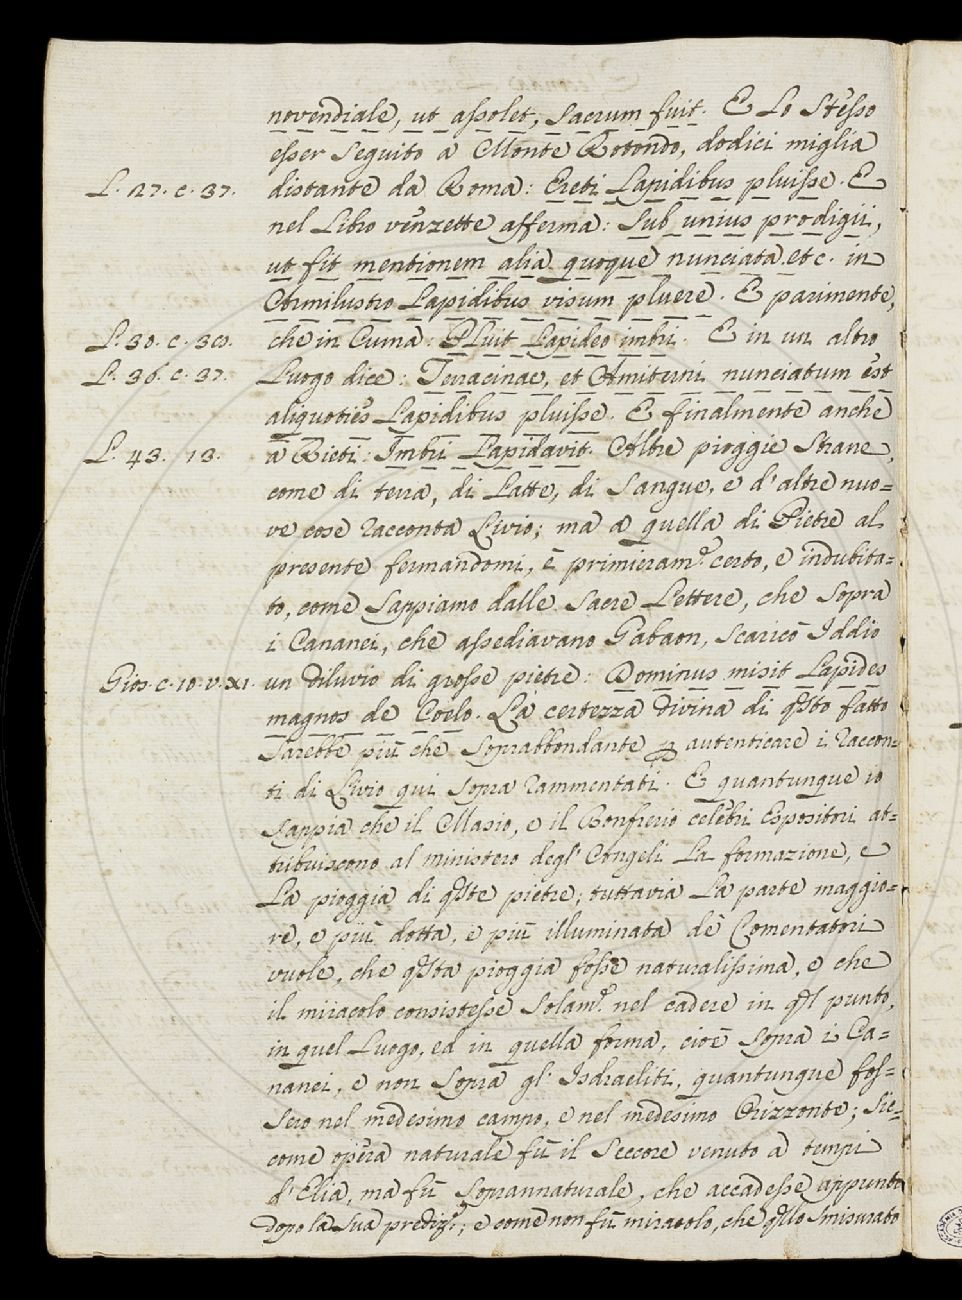 novendiale, ut assolet, sacrum fuit. E lo stesso
esser seguito a Monte Rotondo, dodici miglia
L. 27. c. 37. distante da Roma: Ereti lapidibus pluisse. E
nel libro venzette afferma: Sub unius prodigii,
ut fit mentionem alia quoque nunciata etc. in
Armilustro lapidibus visum pluere. E parimente,
L. 30. c. 30. che in Cuma: Pluit lapideo imbri. E in un altro
L. 36. c. 37. luogo dice: Terracinae, et Amiterni nunciatum est
aliquoties lapidibus pluisse. E finalmente anche
L. 43. 13. a Rieti: Imbri lapidavit. Altre pioggie strane,
come di terra, di latte, di sangue, e d'altre nuo=
ve cose racconta Livio; ma a quella di Pietre al
presente fermandomi, è primieram.e certo, e indubita=
to, come sappiamo dalle sacre lettere, che sopra
i Cananei, che assediavano Gabaon, scaricò Iddio
Gios. c. 10. v. XI. un diluvio di grosse pietre: Dominus misit lapides
magnos de Coelo. La certezza divina di q.sto fatto
sarebbe più che soprabbondante p autenticare i raccon=
ti di Livio qui sopra rammentati. E quantunque io
sappia che il Masio, e il Bonfrerio celebri Espositori at=
tribuiscono al ministero degl'Angeli la formazione, e
la pioggia di q.ste pietre; tuttavia la parte maggio=
re, e più dotta, e più illuminata de Comentatori
vuole, che q.sta pioggia fosse naturalissima, e che
il miracolo consistesse solam.e nel cadere in q.l punto,
in quel luogo, ed in quella forma, cioè sopra i Ca=
nanei, e non sopra gl'Isdraeliti, quantunque fos=
sero nel medesimo campo, e nel medesimo Orizzonte; sic=
come opera naturale fù il seccore venuto a tempi
d'Elia, ma fù soprannaturale, che accadesse appunto
dopo la sua prediz.e; e come non fù miracolo, che q.llo smisurato